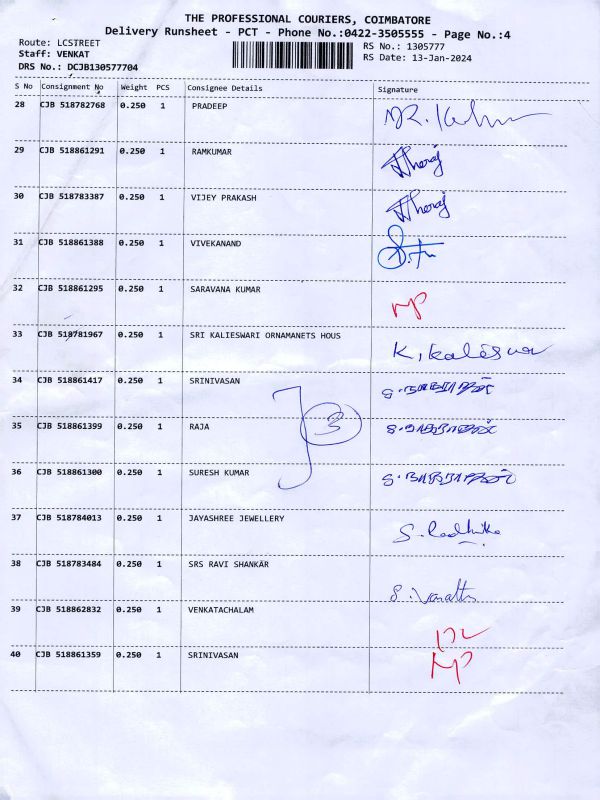 THE PROFESSIONAL COURIERS, COIMBATORE
Delivery Runsheet - PCT - Phone No.:0422-3505555 - Page No.:4
Route: LCSTREET RS No.: 1305777
Staff: VENKAT RS Date: 13-Jan-2024
DRS No.: DCJB130577704
S No Consignment No Weight PCS Consignee Details Signature
28 CJB 518782768 0.250 1 PRADEEP
29 CJB 518861291 0.250 1 RAMKUMAR
30 CJB 518783387 0.250 1 VIJEY PRAKASH
31 CJB 518861388 0.250 1 VIVEKANAND
32 CJB 518861295 0.250 1 SARAVANA KUMAR
33 CJB 518781967 0.250 1 SRI KALIESWARI ORNAMANETS HOUS
34 CJB 518861417 0.250 1 SRINIVASAN
35 CJB 518861399 0.250 1 RAJA
3
36 CJB 518861300 0.250 1 SURESH KUMAR
37 CJB 518784013 0.250 1 JAYASHREE JEWELLERY S. Radhika
38 CJB 518783484 0.250 1 SRS RAVI SHANKAR
39 CJB 518862832 0.250 1 VENKATACHALAM
40 CJB 518861359 0.250 1 SRINIVASAN